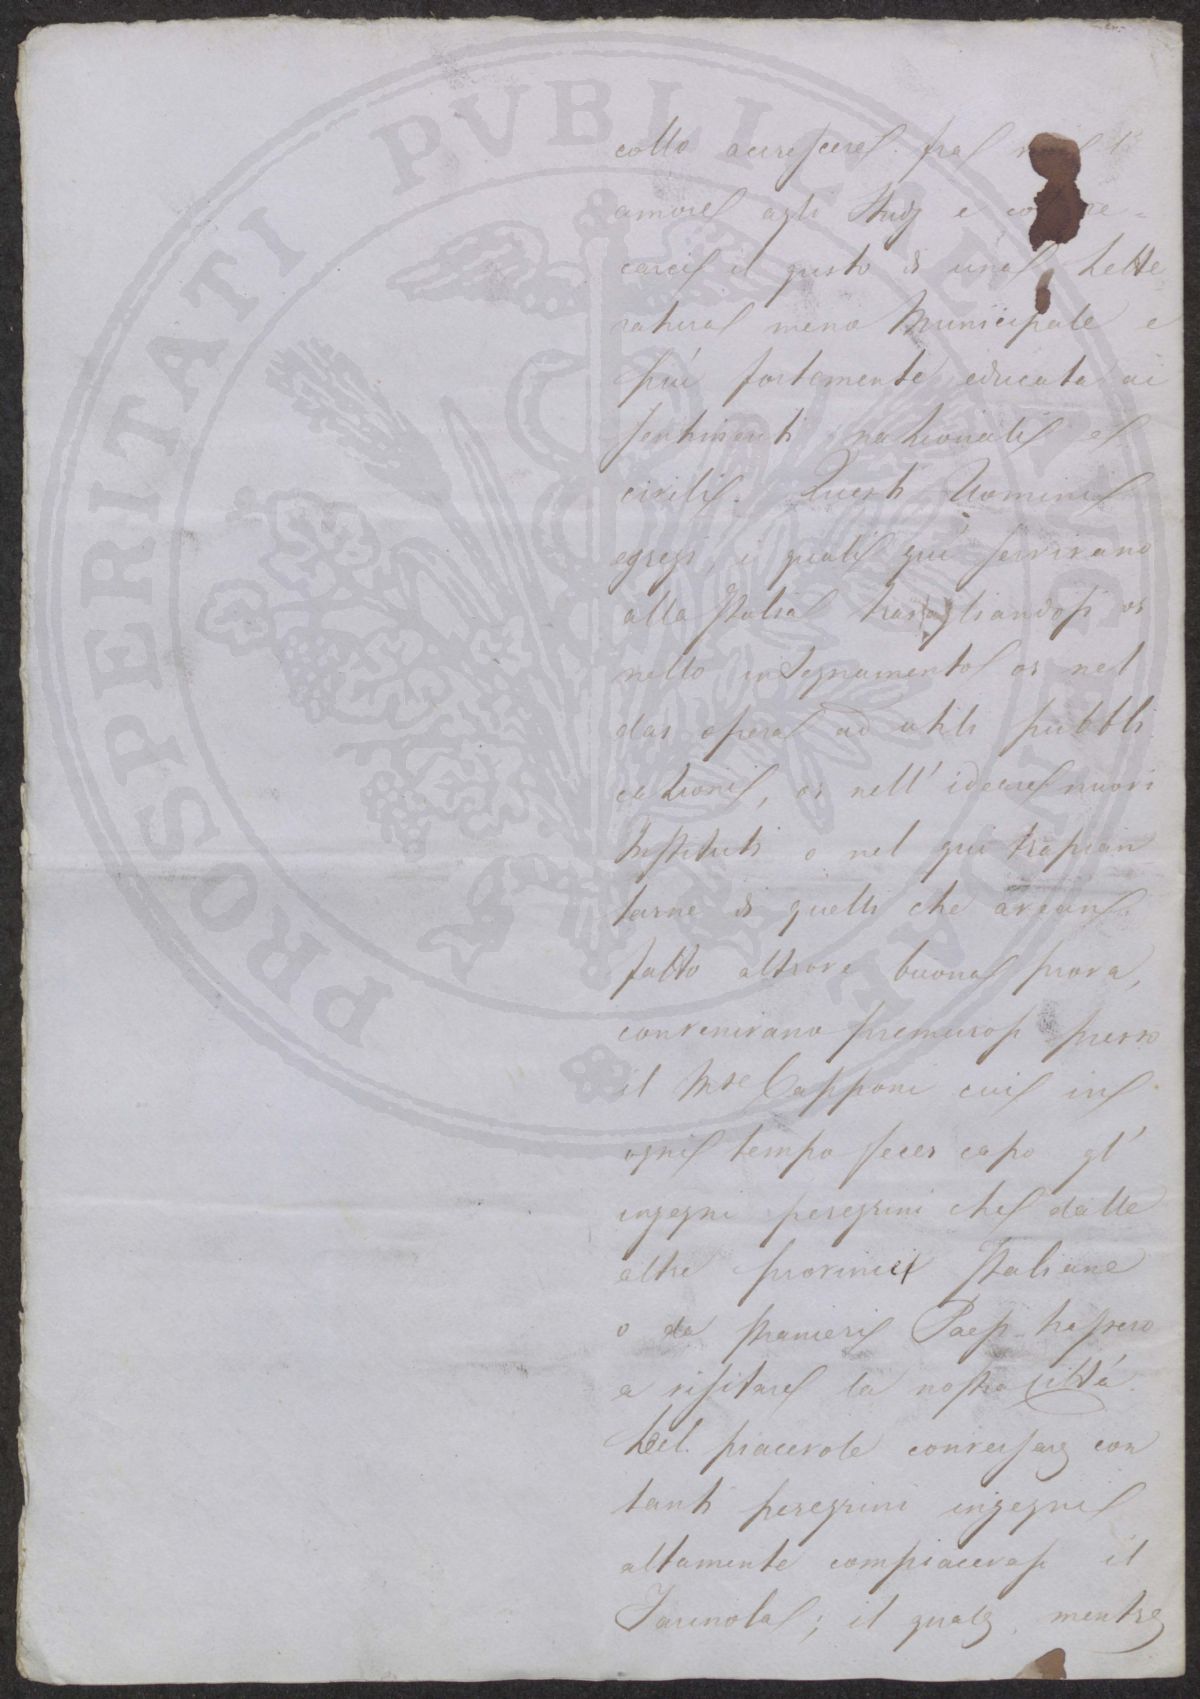 PROSPERITATI PVBLICAE AVGENDAE
collo accrescere fra noi l'
amore agli Studj e co
carci il gusto di una Lette
ratura meno Municipale e
più fortemente educata ai
sentimenti nazionali e
civili. Questi Uomini
egregi, i quali quì servivano
alla Italia travagliandosi or
nello insegnamento or nel
dar opera ad utili pubbli
cazioni, or nell' ideare nuovi
Instituti o nel quì trapian
tarne di quelli che avean
fatto altrove buona prova,
convenivano premurosi presso
il Mse Capponi cui in
ogni tempo fecer capo gl'
ingegni peregrini che dalle
altre provincie Italiane
o da stranieri Paesi trassero
a visitare la nostra città.
Del piacevole conversare con
tanti peregrini ingegni
altamente compiacevasi il
Farinola; il quale, mentre